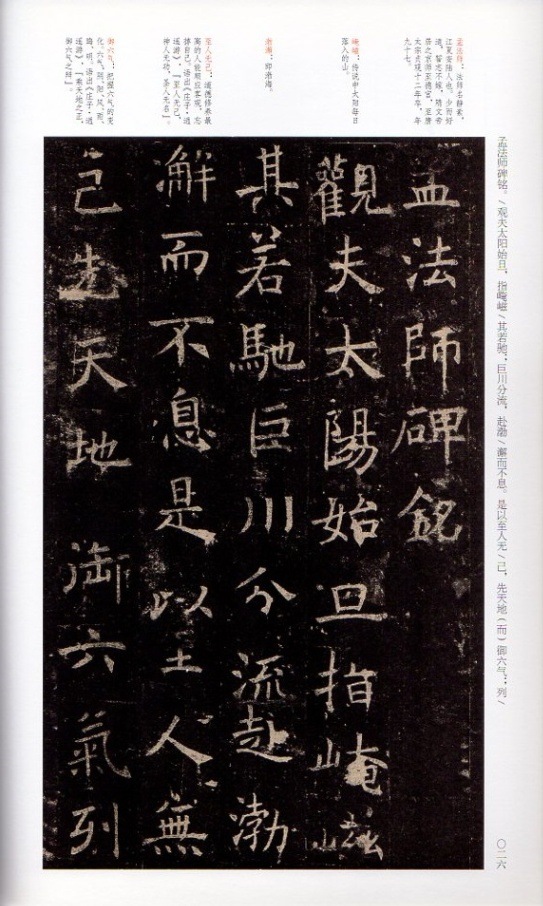 孟法师：法师名静素，
江夏安陆人也。少而好
道，誓志不嫁，隋文帝
居之京师至德宫，至唐
太宗贞观十二年卒，年
九十七。
崦嵫：传说中太阳每日
落入的山。
渤澥：即渤海。
至人无己：道德修养最
高的人能顺应客观，忘
掉自己。语出《庄子·逍
遥游》，「至人无己，
神人无功，圣人无名」。
御六气：把握六气的变
化。六气，阴、阳、风、雨、
晦、明。语出《庄子·逍
遥游》，「乘天地之正，
御六气之辩」。
孟法师碑铭。/观夫太阳始旦，指崦嵫/其若驰；巨川分流，赴渤/澥而不息。是以至人无/己，先天地（而）御六气；列/
孟法師碑銘
觀夫太陽始旦指崦嵫
其若馳巨川分流赴渤
澥而不息是以至人無
己先天地 御六氣列
〇二六